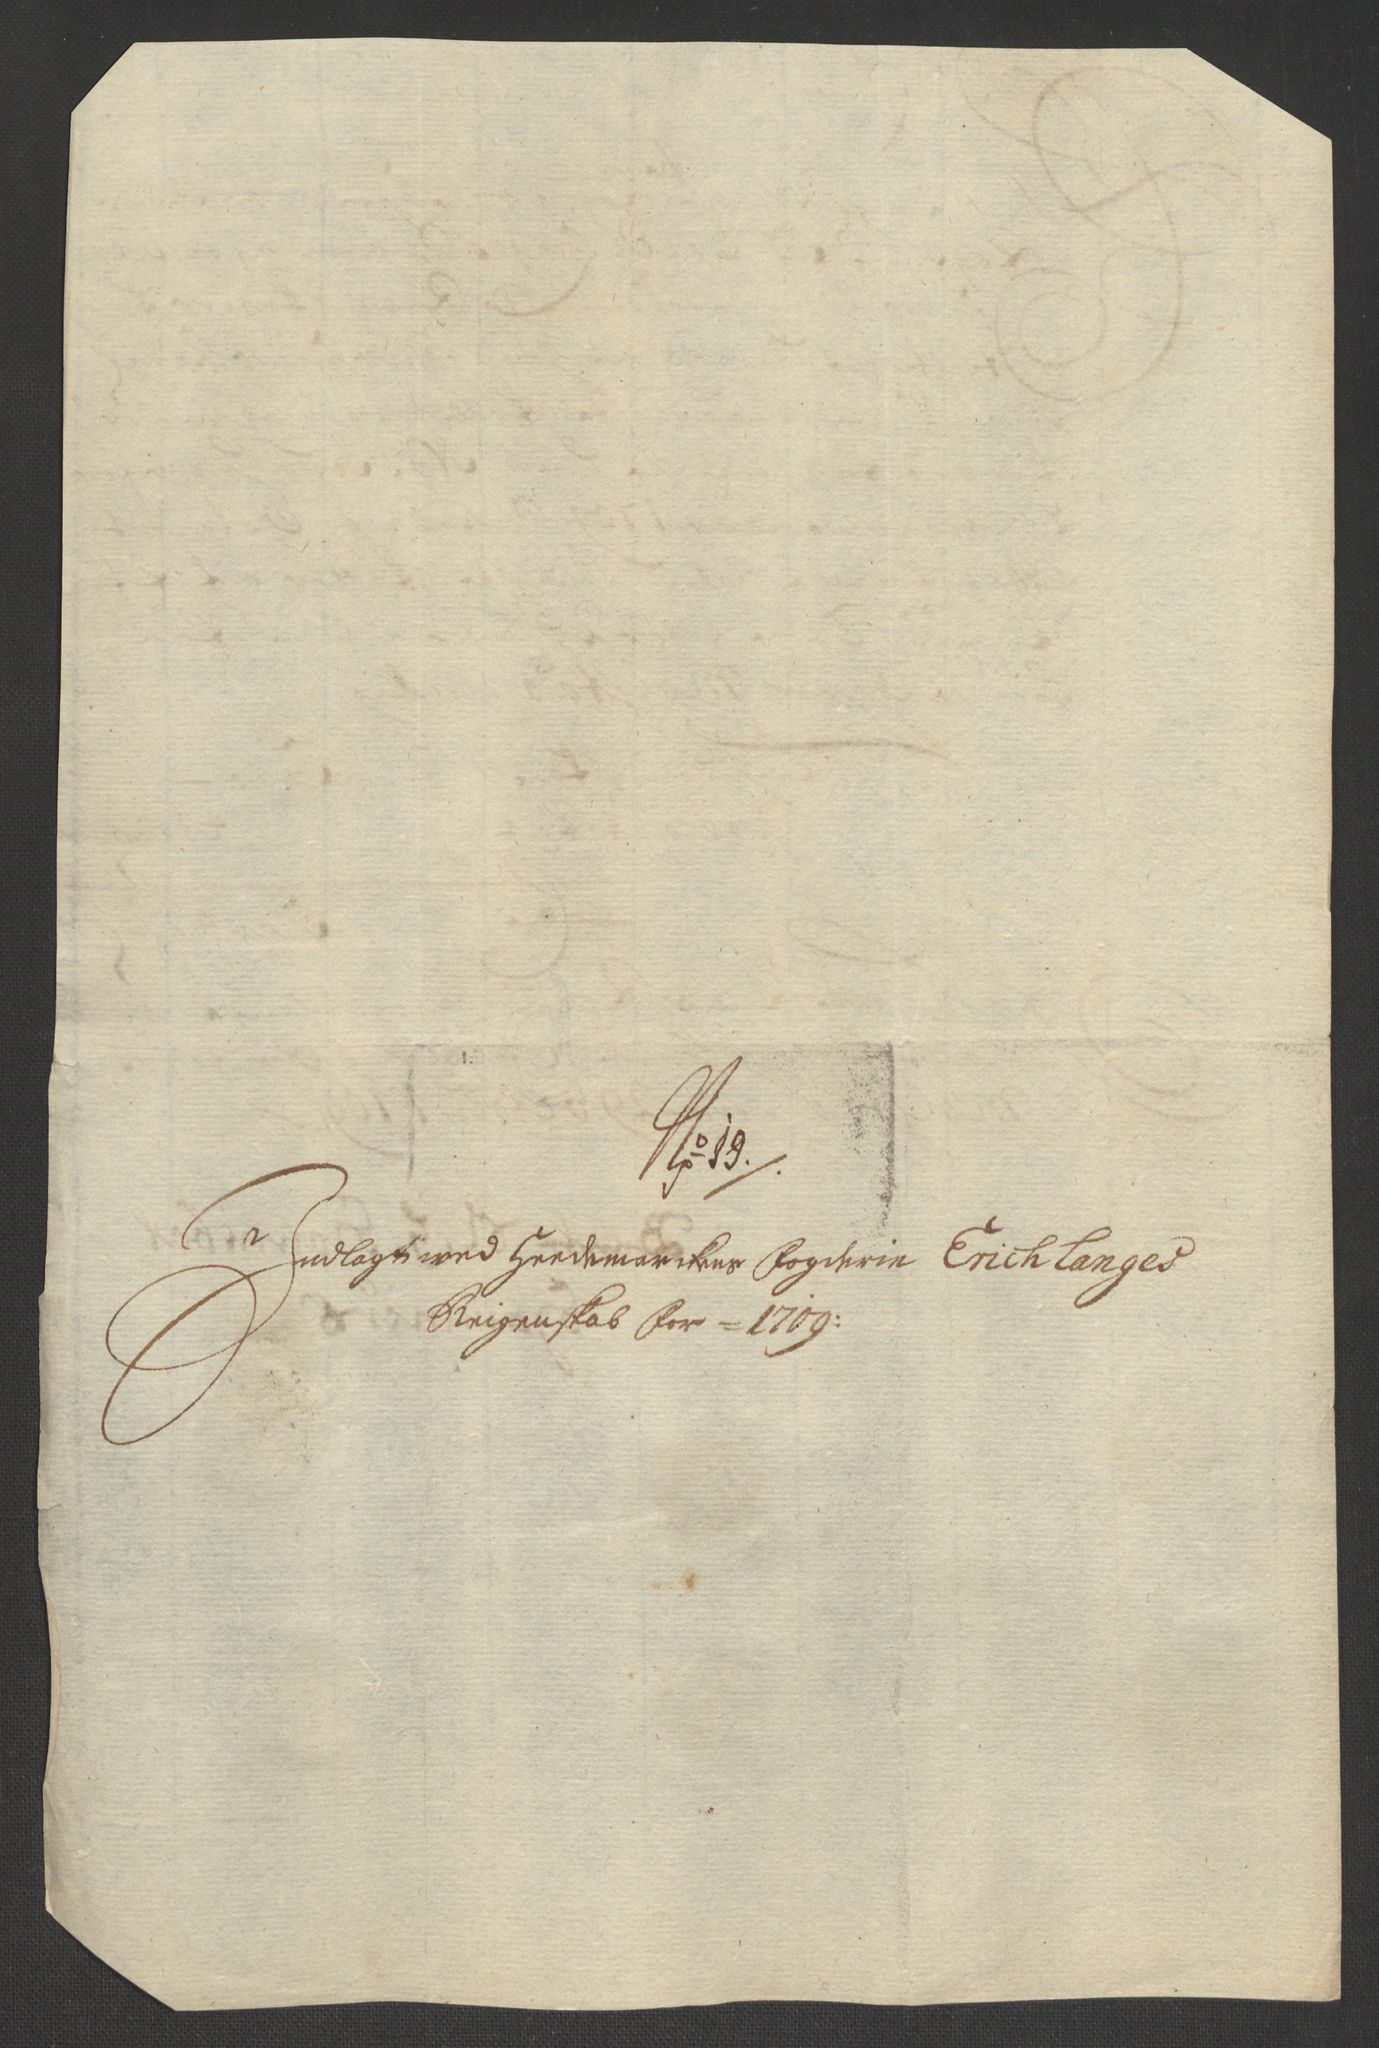 No 19.
Indlagt wed Heedemarckens Fogderie Erich Langes
Reigenskab for = 1709: